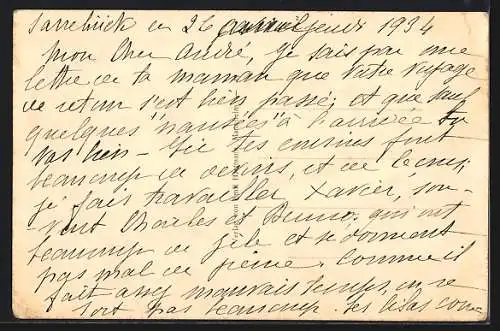 Sarrebrück ce 26 avril jeudi 1934
Mon Cher André, Je sais par une
lettre de ta maman que votre voyage
de retour s'est bien passé; et que seul
quelques "nausées" à l'arrivée tu
vas bien - Ici tes cousins font
beaucoup de devoirs, et de
je fais travailler Xavier, sou-
vent Charles et Bruno, qui ont
beaucoup de zèle et se donnent
pas mal de peine. Comme il
fait assez mauvais temps, on ne
sort pas beaucoup. Les